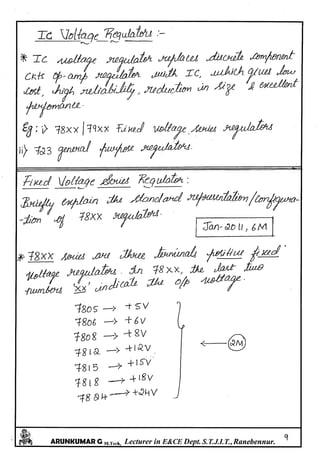 Ic Voltage Regulators :-
* Ic voltage regulator replaces discrete component
Ckts op-amp regulator with IC, which gives low
cost, high reliability, reduction in size & excellent
perfomance.
Eg: i) 78XX | 79XX Fixed voltage series regulators
ii) 723 general purpose regulators.
Fixed Voltage Series Regulator :
Briefly explain the standard representation / configura-
-tion of 78XX regulators.
Jan-2011, 6M
* 78XX series are three terminals positive fixed
voltage regulators. In 78XX, the last two
numbers 'XX' indicate the o/p voltage.
7805 → +5V
7806 → +6V
7808 → +8V
7812 → +12V
← 2M
7815 → +15V
7818 → +18V
7824 → +24V
ARUNKUMAR G M.Tech, Lecturer in E&CE Dept. S.T.J.I.T., Ranebennur. 9